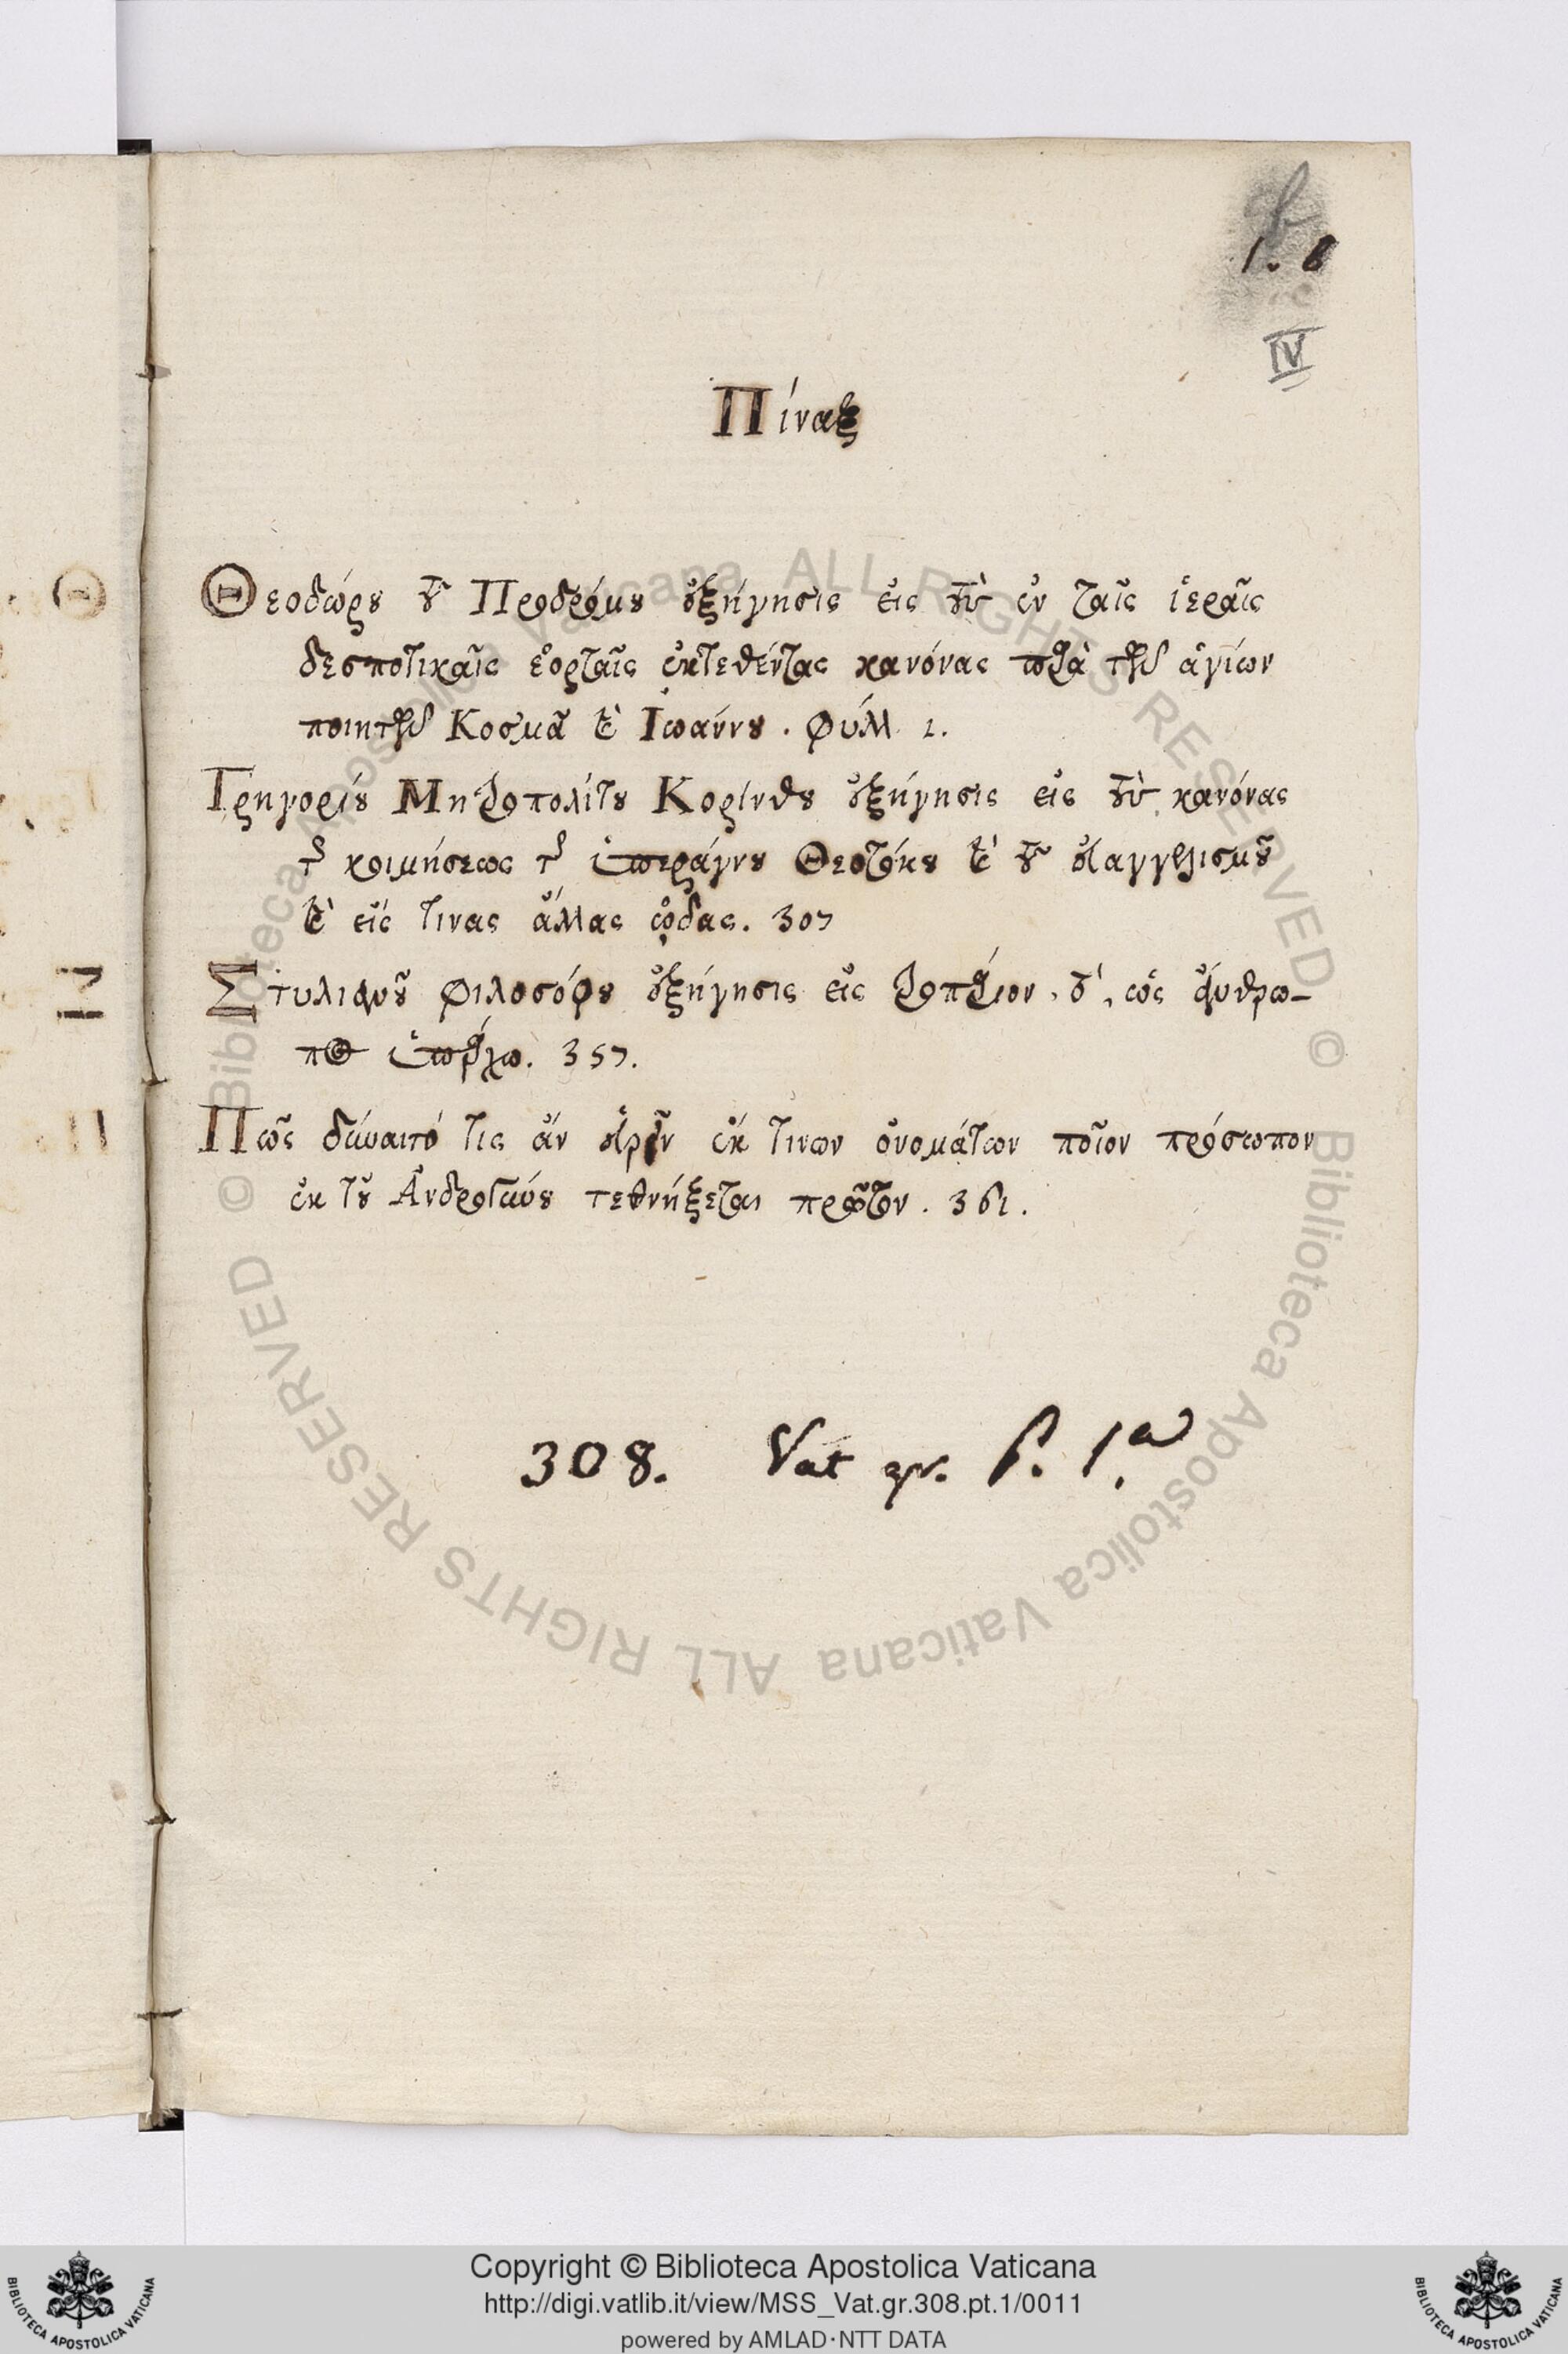 1. 8
IV
Πίναξ
Θεοδώρου τοῦ Προδρόμου ἐξήγησις εἰς τοὺς ἐν ταῖς ἱεραῖς
δεσποτικαῖς ἑορταῖς ἐκτεθέντας κανόνας παρὰ τῶν ἁγίων
ποιητῶν Κοσμᾶ καὶ Ἰωάννου. φύλλ. 1.
Γρηγορίου Μητροπολίτου Κορίνθου ἐξήγησις εἰς τοὺς κανόνας
τῆς κοιμήσεως τῆς ὑπεράγνου Θεοτόκου καὶ τοῦ εὐαγγελισμοῦ
καὶ εἰς τινας ἄλλας ᾠδας. 307
Στυλιανοῦ φιλοσόφου ἐξήγησις εἰς τροπάριον, δ', ὡς ἄνθρω-
πος ὑπάρχω. 357.
Πῶς δύναιτό τις ἂν εὑρεῖν ἔκ τινων ὀνομάτων ποῖον πρόσωπον
ἐκ τοῦ Ἀνδρογύνου τεθνήξεται πρῶτον. 361.
308. Vat gr. P. 1.a
© Biblioteca Apostolica Vaticana ALL RIGHTS RESERVED © Biblioteca Apostolica Vaticana ALL RIGHTS RESERVED
Copyright © Biblioteca Apostolica Vaticana
http://digi.vatlib.it/view/MSS_Vat.gr.308.pt.1/0011
powered by AMLAD·NTT DATA
BIBLIOTECA APOSTOLICA VATICANA
BIBLIOTECA APOSTOLICA VATICANA